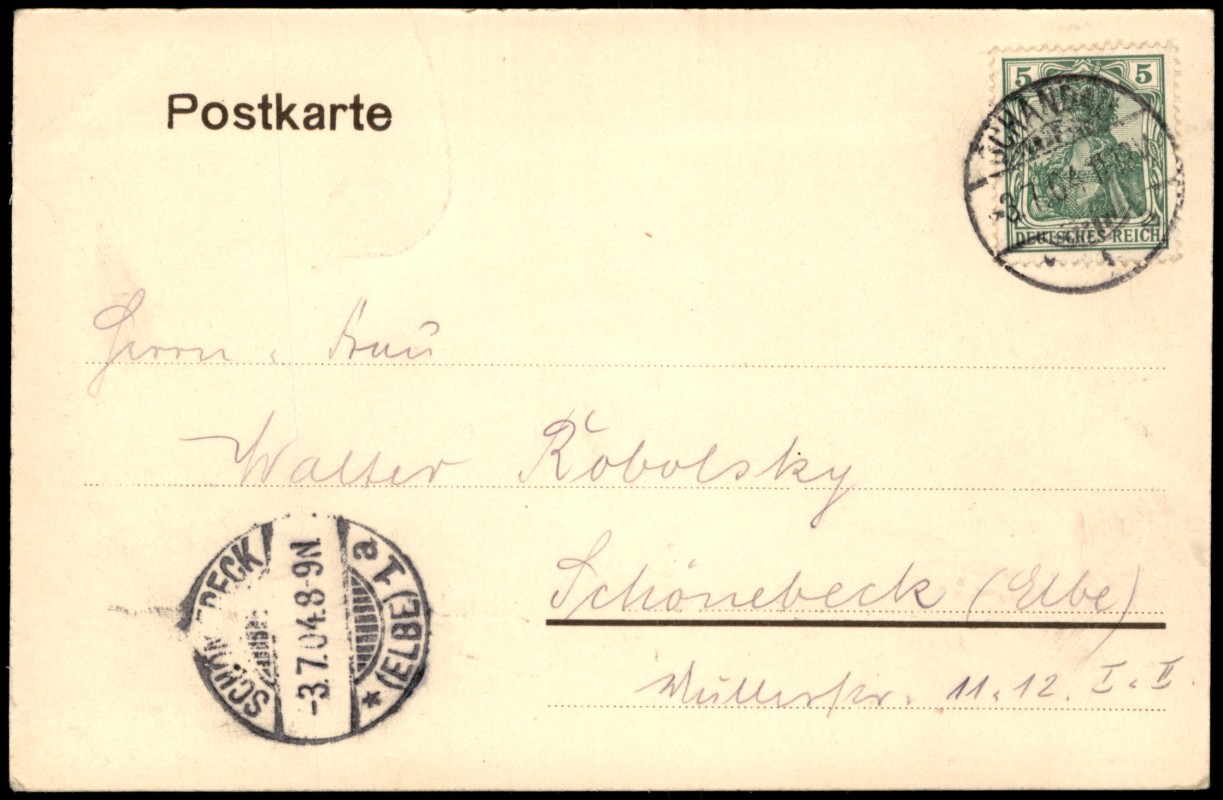 Postkarte
5 5
SCHANDAU
DEUTSCHES REICH
Herrn u. Frau
Walter Robolsky
Schönebeck (Elbe)
Müllerstr. 11 u. 12. I u. II.
SCHÖNEBECK a 1 (ELBE)
-3.7.04.8-9N.